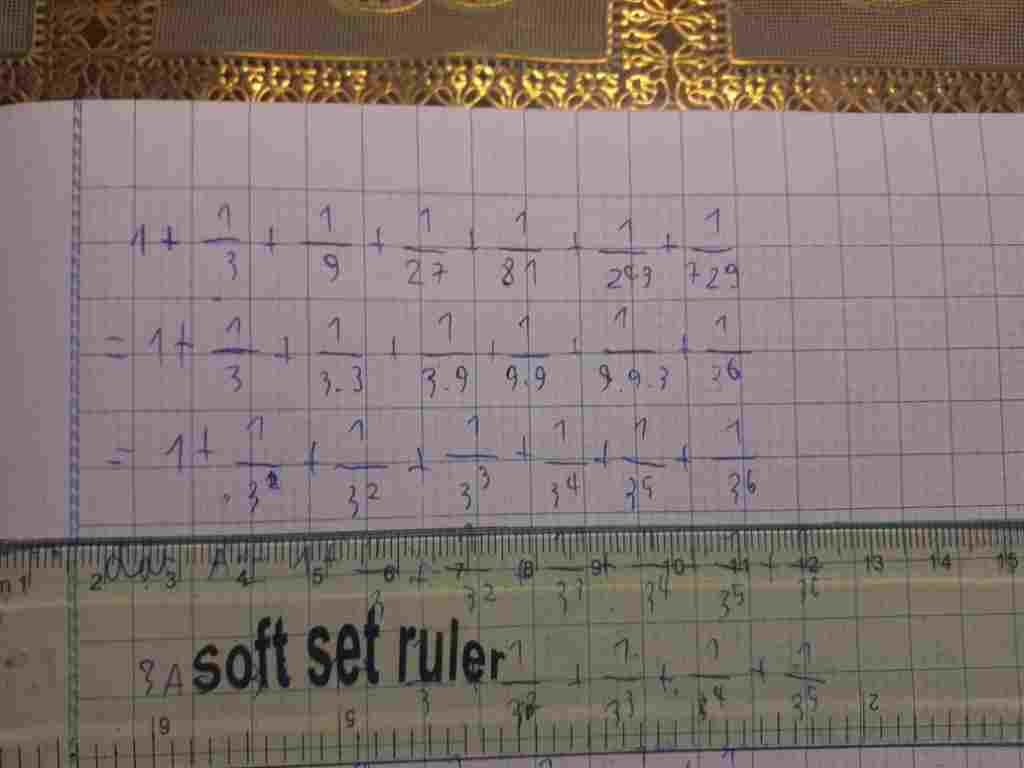 1 + 1/3 + 1/9 + 1/27 + 1/81 + 1/243 + 1/729
= 1 + 1/3 + 1/3.3 + 1/3.9 + 1/9.9 + 1/9.9.3 + 1/3⁶
= 1 + 1/3¹ + 1/3² + 1/3³ + 1/3⁴ + 1/3⁵ + 1/3⁶
2 3 4 5 6 7 8 9 10 11 12 13 14 15
A = 1 + 1/3 + 1/3² + 1/3³ + 1/3⁴ + 1/3⁵ + 1/3⁶
3A soft set ruler 1/3² + 1/3³ + 1/3⁴ + 1/3⁵
6 5 2